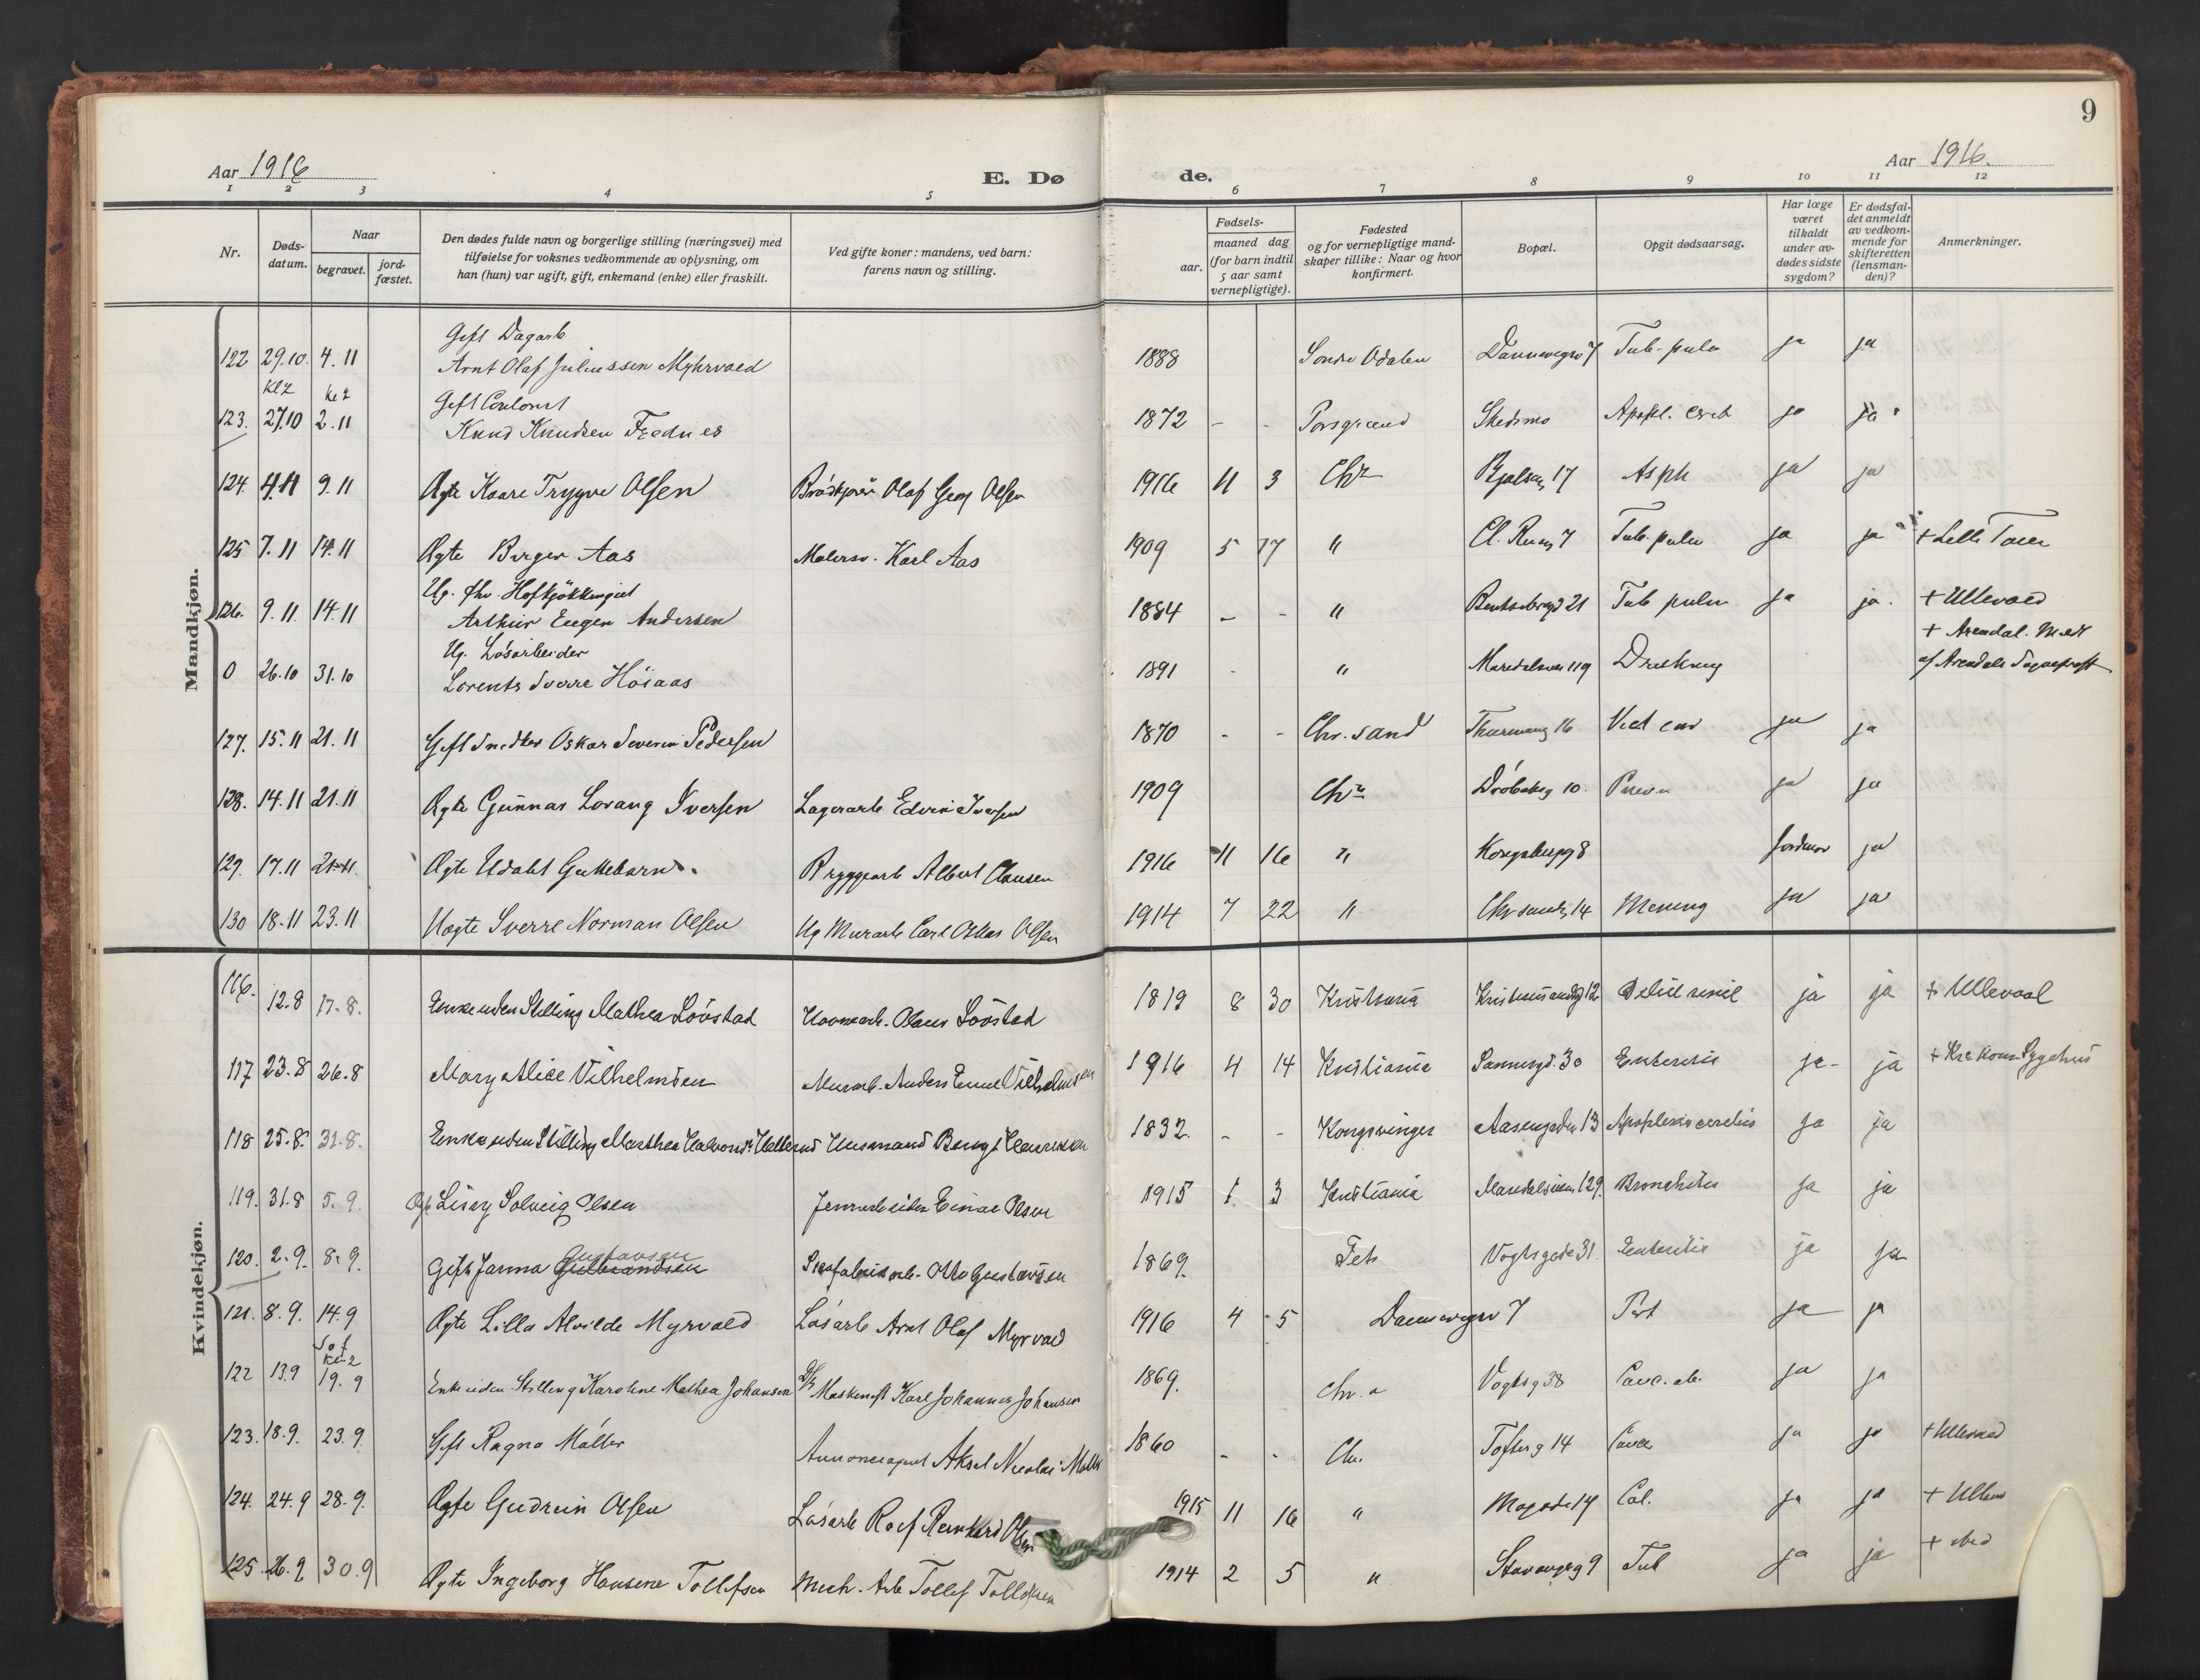 9
Aar 1916
E. Dø
de.
Aar 1916.
1 2 3 4 5 6 7 8 9 10 11 12
Nr.
Døds-
datum.
Naar
begravet.
jord-
fæstet.
Den dødes fulde navn og borgerlige stilling (næringsvei) med
tilføielse for voksnes vedkommende av oplysning, om
han (hun) var ugift, gift, enkemand (enke) eller fraskilt.
Ved gifte koner: mandens, ved barn:
farens navn og stilling.
Fødsels-
aar.
maaned dag
(for barn indtil
5 aar samt
vernepligtige).
Fødested
og for vernepligtige mand-
skaper tillike: Naar og hvor
konfirmert.
Bopæl.
Opgit dødsaarsag.
Har læge
været
tilkaldt
under av-
dødes sidste
sygdom?
Er dødsfal-
det anmeldt
av vedkom-
mende for
skifteretten
(lensman-
den)?
Anmerkninger.
Mandkjøn.
Gift Dagarb
122 29.10. 4.11 Arnt Olaf Juliussen Myhrvold 1888 Søndre Odalen Dannevigsv 7 Tub. pulm ja ja
kl 2 kl 2
Gift
123. 27.10 2.11 Knud Knudsen Frednes 1872 - - Porsgrund Skedsmo Apopl. cereb ja ja
124. 4.11 9.11 Ægte Kaare Trygve Olsen Olaf Georg Olsen 1916 11 3 Chr 17 Asph ja ja
125 7.11 14.11 Ægte Birger Aas Malersv. Karl Aas 1909 5 17 " 7 Tub. pulm ja ja
Ug. fhv.
126. 9.11. 14.11 Arthur Eugen Andersen 1884 - - " Bentsebrogd 21 Tub pulm ja ja. + Ullevaal
Ug. Løsarbeider
+ Arendal.
0 26.10 31.10 Lorents Sverre Høiaas 1891 - " Maridalsveien 119 Drukning af Arendals
127. 15.11 21.11 Gift Snedker Oskar Severin Pedersen 1870 - - Chr.sand Thurmansg 16 ja ja
128. 14.11 21.11 Ægte Gunnar Lorang Iversen Lagerarb Edvin Iversen 1909 Chra Drøbaksg 10. ja ja
129. 17.11 21.11 Ægte Udøbt Guttebarn. Bryggearb Albert Clausen 1916 11 16 " Kongsbergg 8 Jordmor ja
130 18.11 23.11 Uægte Sverre Norman Olsen Ug Murarb Carl Oskar Olsen 1914 7 22 " 14 Mening ja ja
Kvindekjøn.
116. 12.8 17.8. Enke uden Stilling Mathea Løvstad Olaus Løvstad 1819 8 30 Kristiania 12 ja ja + Ullevaal
117 23.8 26.8 Mary Alice Vilhelmsen Murarb. Anders Emil Vilhelmsen 1916 4 14 Kristiania Sannergd. 30 Enteritis ja- ja
118 25.8. 31.8. Enke uden Stilling Marthea Husmand Bengt Henriksen 1832. - - Kongsvinger Aasengaden 13 Apoplexia cerebris ja ja
119. 31.8 5.9. Ægt Lissy Solveig Olsen Einar Olsen 1915 1 3 Kristiania Maridalsveien 129. Bronchitis ja ja
Gustavsen
120. 2.9. 8.9. Gift Janna Gulbrandsen Otto Gustavsen 1869. Fets Vogtsgade 31 Enteritis ja ja
121. 8.9. 14.9 Ægte Lilla Alvilde Myrvold Løsarb Arnt Olaf Myrvold 1916 4 5 Dannevigsv 7 Pert ja ja
kl 2
122 13.9 19.9 Enke uden Stilling Karoline Mathea Johansen Karl Johannes Johansen 1869. Chr.a Vogtsg 38 ja ja
123. 18.9. 23.9. Gift Ragna Møller Aksel Nicolai 1860 - - Chr. Tofteg 14 Cancer ja ja + Ullevaal
124. 24.9 28.9. Ægte Gudrun Olsen Løsarb Rolf Reinhard Olsen 1915 11 16 " 14 ja ja
125. 26.9 30.9 Ægte Ingeborg Hansine Tollefsen Mech. Arb Tollef Tollefsen 1914 2 5 " Stavangerg 9 Tub ja ja